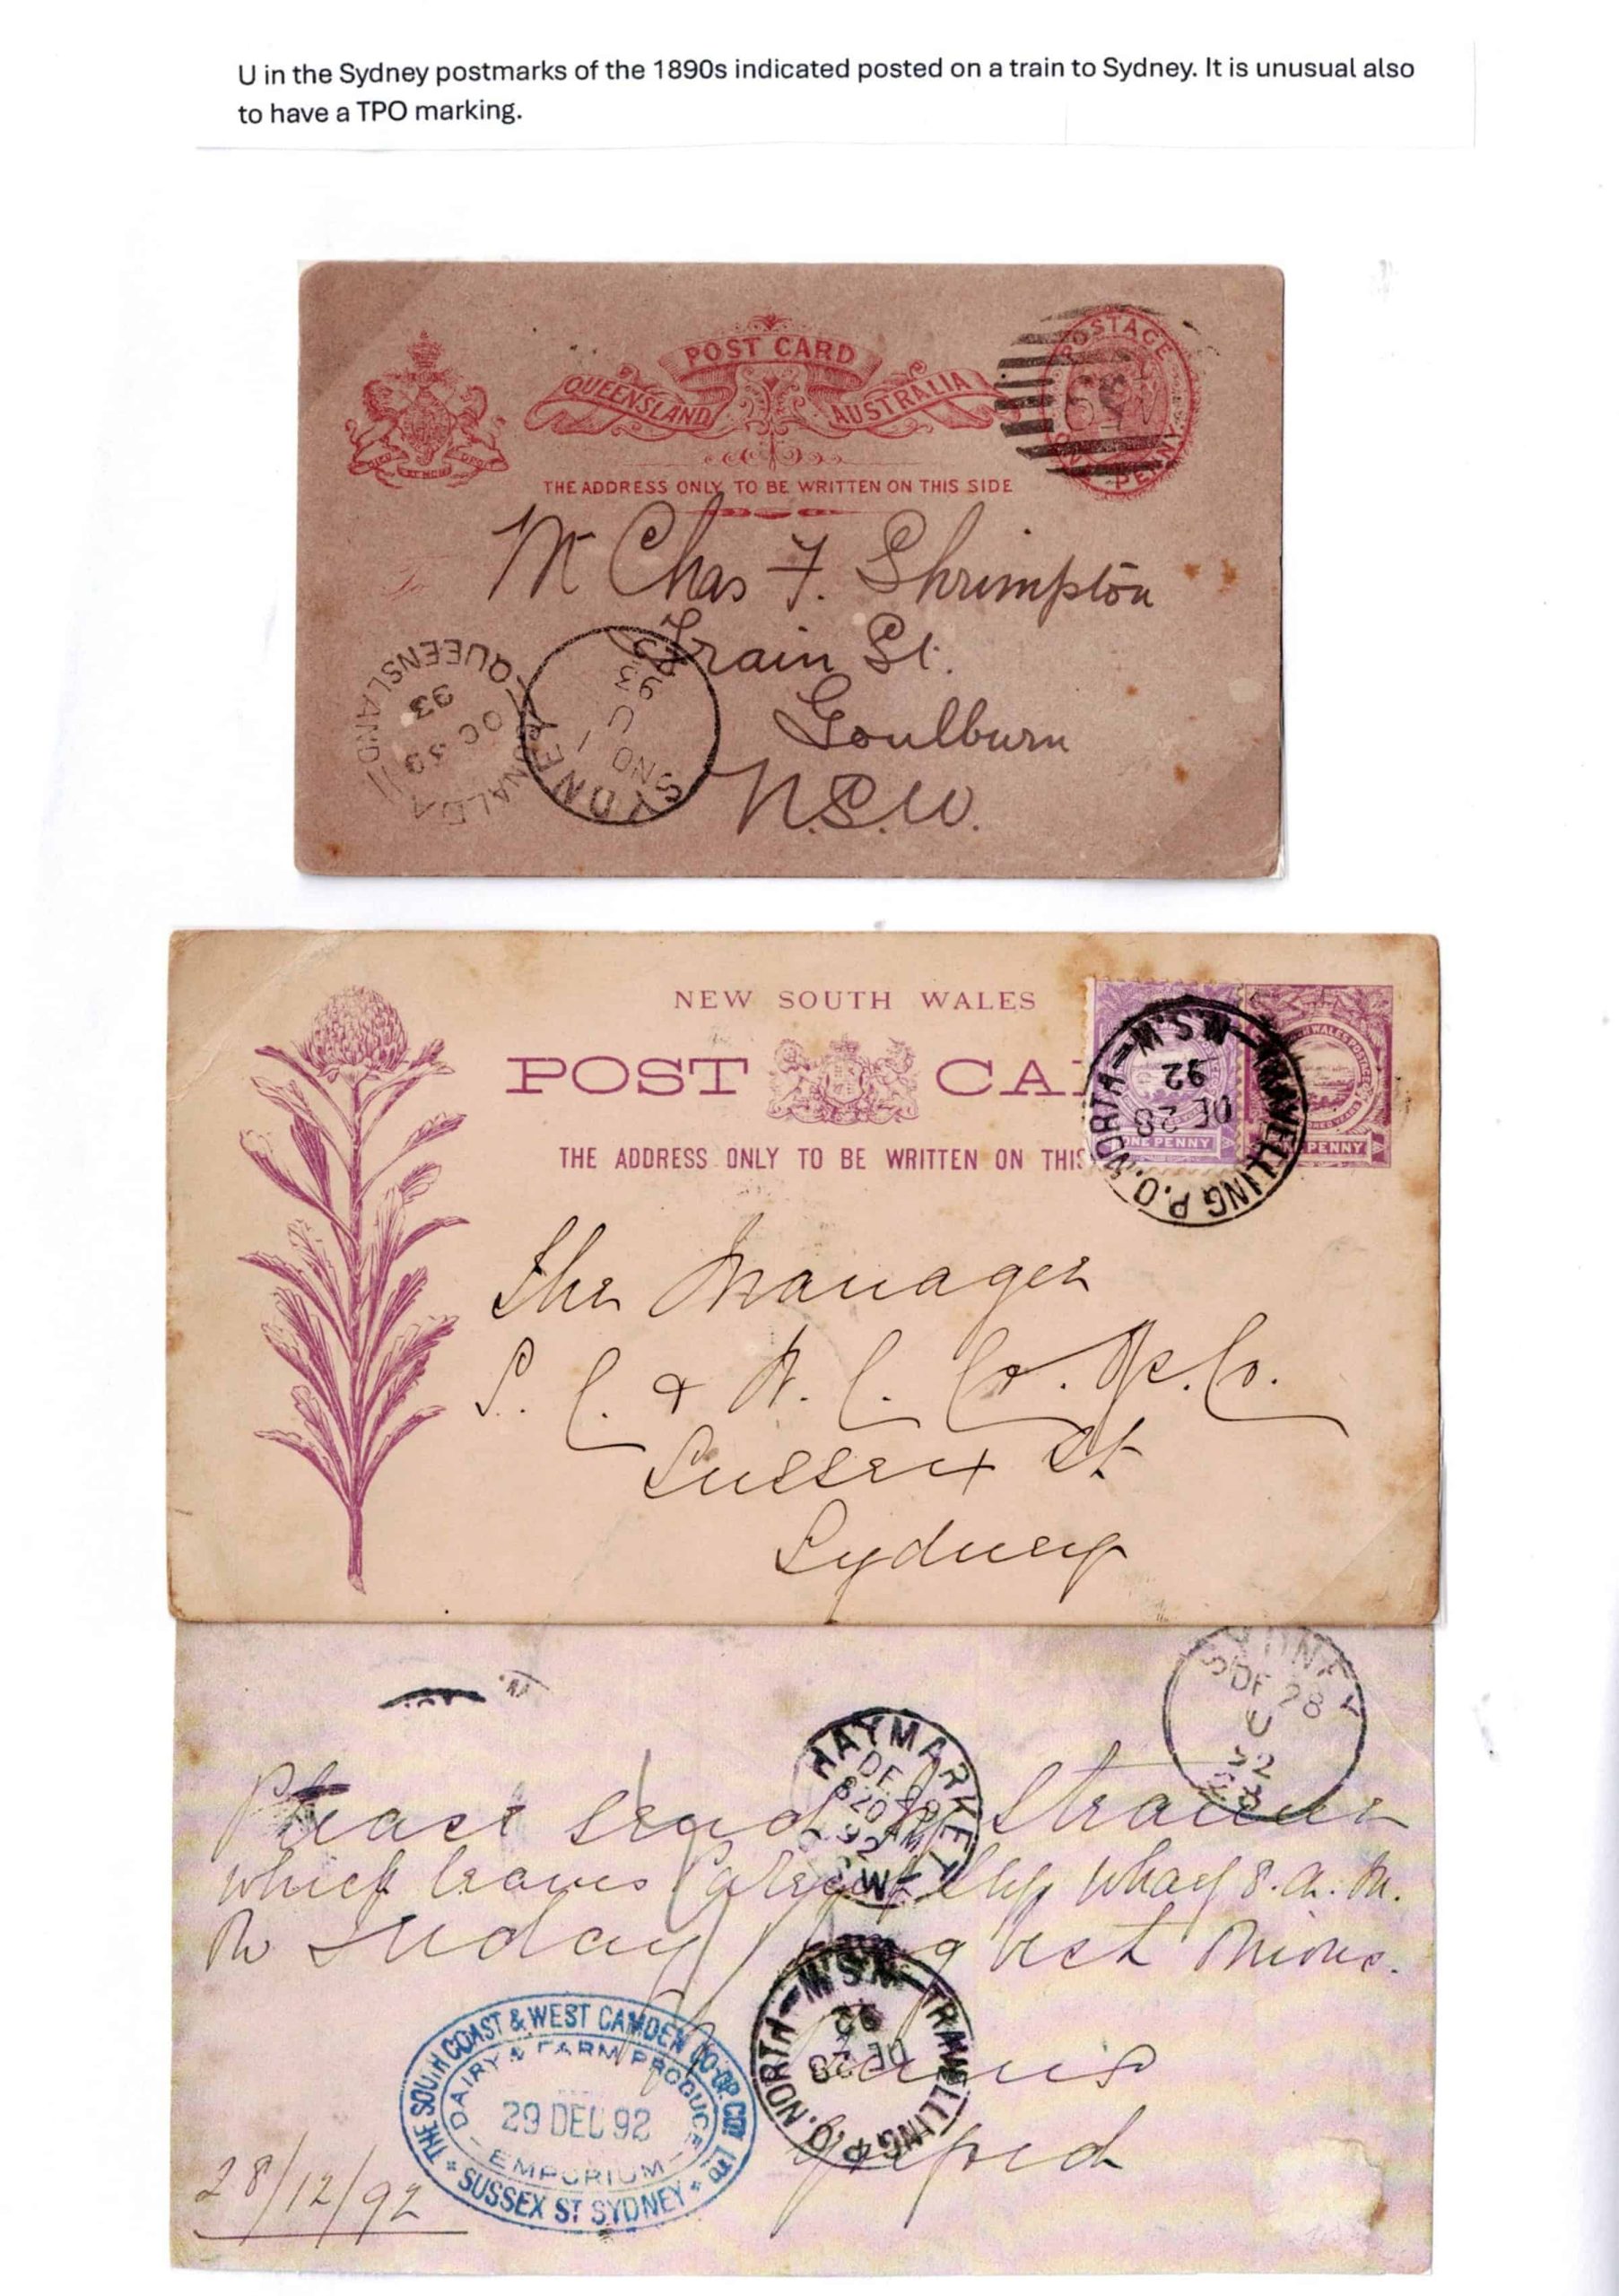 U in the Sydney postmarks of the 1890s indicated posted on a train to Sydney. It is unusual also
to have a TPO marking.
POST CARD
QUEENSLAND AUSTRALIA
POSTAGE
ONE PENNY
THE ADDRESS ONLY TO BE WRITTEN ON THIS SIDE
To
Mr Chas F. Shrimpton
Train St.
Goulburn
N.S.W.
QUEENSLAND
OC 30
93
SYDNEY
NO 1
U
93
NEW SOUTH WALES
POST CA
THE ADDRESS ONLY TO BE WRITTEN ON THIS
ONE PENNY
PENNY
TRAVELLING P.O. NORTH N.S.W
DE 28
92
The Manager
S. C. & W. C. Co. Op. Co.
Sussex St
Sydney
SYDNEY
DE 28
U
92
HAYMARKET
DE 29
8 20 AM
92
N.S.W
Please send by Steamer
which leaves wharf 8. a. m.
best
TRAVELLING P.O. NORTH N.S.W
DE 28
92
THE SOUTH COAST & WEST CAMDEN CO-OP. COY LTD
DAIRY & FARM PRODUCE
29 DEC 92
EMPORIUM
SUSSEX ST SYDNEY
28/12/92